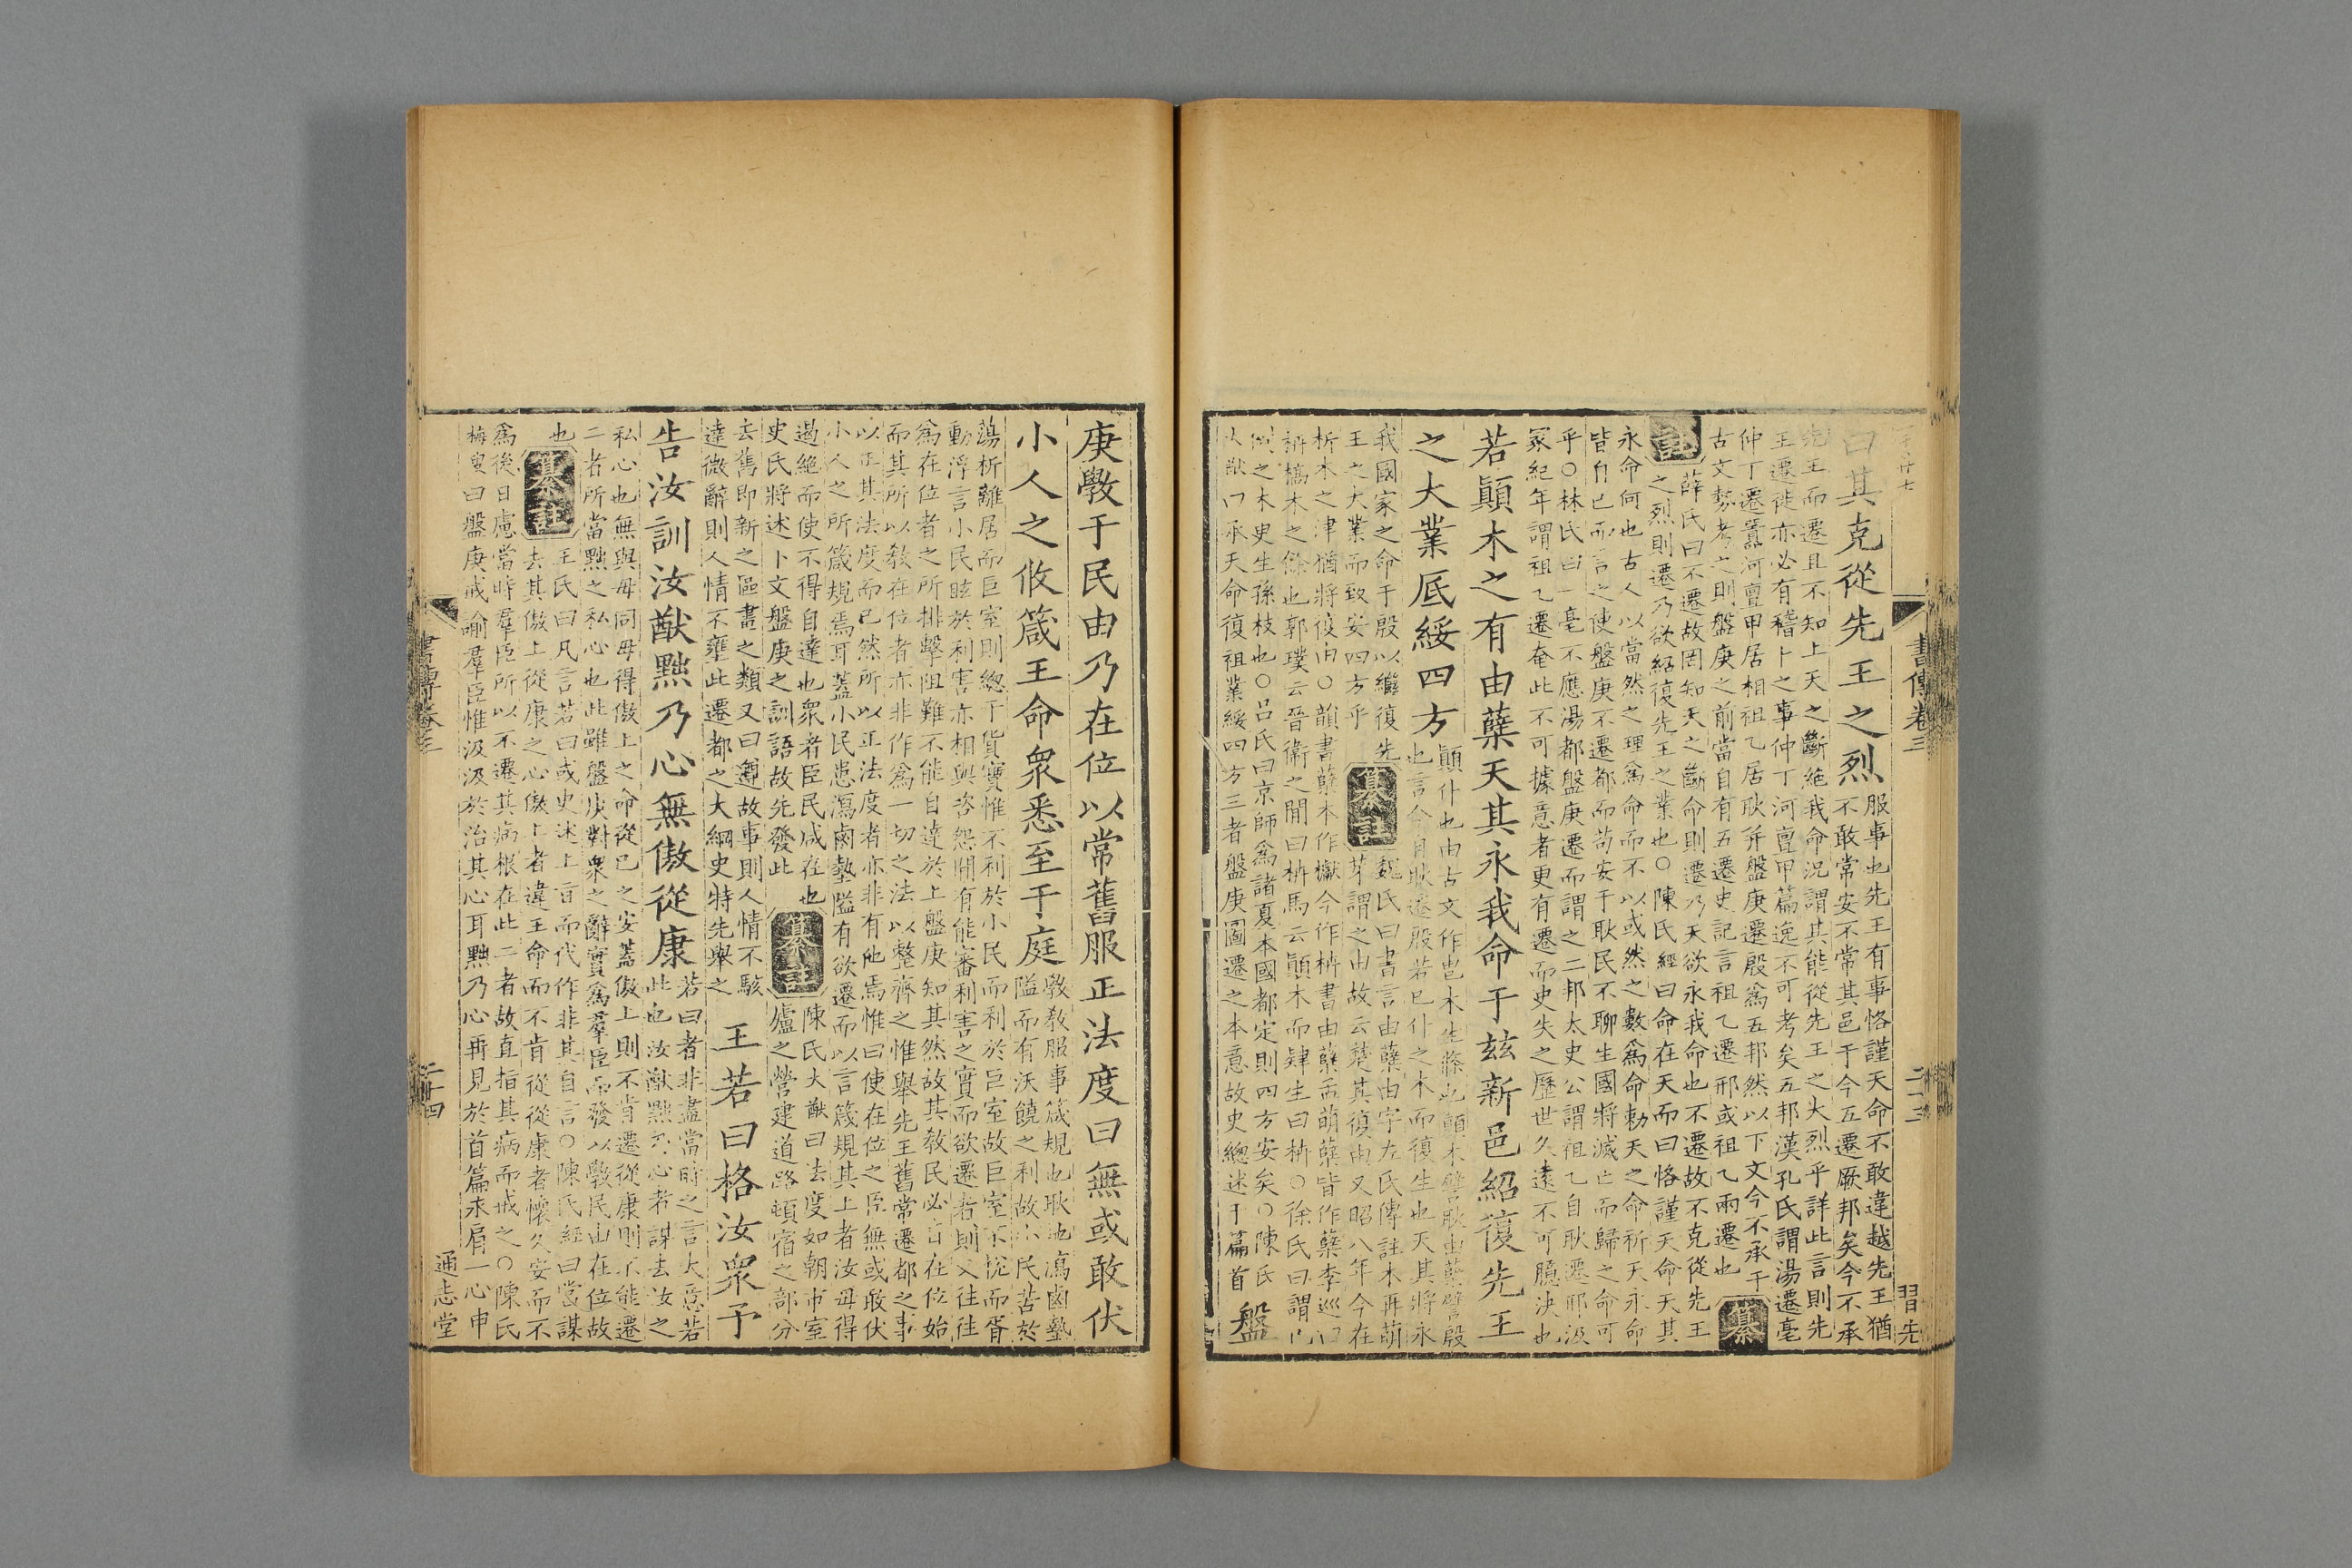 書傳卷三
二十三
習先
曰其克從先王之烈
服事也先王有事恪謹天命不敢違越先王猶
不敢常安不常其邑于今五遷厥邦矣今不承
先王而遷且不知上天之斷絕我命況謂其能從先王之大烈乎詳此言則先
王遷徙亦必有稽卜之事仲丁河亶甲篇逸不可考矣五邦漢孔氏謂湯遷亳
仲丁遷囂河亶甲居相祖乙居耿并盤庚遷殷爲五邦然以下文今不承于
古文勢考之則盤庚之前當自有五遷史記言祖乙遷邢或祖乙兩遷也
纂
註
薛氏曰不遷故罔知天之斷命則遷乃天欲永我命也不遷故不克從先王
之烈則遷乃欲紹復先王之業也○陳氏經曰命在天而曰恪謹天命天其
永命何也古人以當然之理爲命而不以或然之數爲命勑天之命祈天永命
皆自已而言之使盤庚不遷都而苟安于耿民不聊生國將滅亡而歸之命可
乎○林氏曰一毫不應湯都盤庚遷而謂之二邦太史公謂祖乙自耿遷邢汲
冢紀年謂祖乙遷奄此不可據意者更有遷而史失之歷世久遠不可臆決也
若顚木之有由蘖天其永我命于茲新邑紹復先王
之大業厎綏四方
顚仆也由古文作甹木生條也顚木譬耿由蘖譬殷
也言今自耿遷殷若已仆之木而復生也天其將永
我國家之命于殷以繼復先
王之大業而致安四方乎
纂註
魏氏曰書言由蘖由字左氏傳註木再萌
芽謂之由故云楚其復由又昭八年今在
析木之津猶將復由○韻書蘖木作櫱今作枿書由蘖孟萌蘖皆作蘖李巡曰
枿槁木之餘也郭璞云晉衛之間曰枿馬云顚木而肆生曰枿○徐氏曰謂已
倒之木更生孫枝也○呂氏曰京師爲諸夏本國都定則四方安矣○陳氏
大猷曰承天命復祖業綏四方三者盤庚圖遷之本意故史總述于篇首
盤
庚斆于民由乃在位以常舊服正法度曰無或敢伏
小人之攸箴王命衆悉至于庭
斆敎服事箴規也耿地潟鹵墊
隘而有沃饒之利故小民苦於
蕩析離居而巨室則總于貨寶惟不利於小民而利於巨室故巨室不悅而胥
動浮言小民眩於利害亦相與咨怨間有能審利害之實而欲遷者則又往往
爲在位者之所排擊阻難不能自達於上盤庚知其然故其敎民必自在位始
而其所以敎在位者亦非作爲一切之法以整齊之惟舉先王舊常遷都之事
以正其法度而已然所以正法度者亦非有他焉惟曰使在位之臣無或敢伏
小人之所箴規焉耳蓋小民患潟鹵墊隘有欲遷而以言箴規其上者汝毋得
遏絕而使不得自達也衆者臣民咸在也
史氏將述下文盤庚之訓語故先發此
纂註
陳氏大猷曰法度如朝市宮室
廬之營建道路頓宿之部分
去舊即新之區畫之類又曰遵故事則人情不駭
達微辭則人情不壅此遷都之大綱史特先舉之
王若曰格汝衆予
告汝訓汝猷黜乃心無傲從康
若曰者非盡當時之言大意若
此也汝猷黜乃心者謀去汝之
私心也無與毋同毋得傲上之命從已之安蓋傲上則不肯遷從康則不能遷
二者所當黜之私心也此雖盤庚對衆之辭實爲羣臣而發以斆民由在位故
也
纂註
王氏曰凡言若曰或史述上旨而代作非其自言○陳氏經曰當謀
去其傲上從康之心傲上者違王命而不肯從從康者懷久安而不
爲後日慮當時羣臣所以不遷其病根在此二者故直指其病而戒之○陳氏
梅叟曰盤庚戒喻羣臣惟汲汲於治其心耳黜乃心再見於首篇永肩一心申
書傳卷三
二十四
通志堂